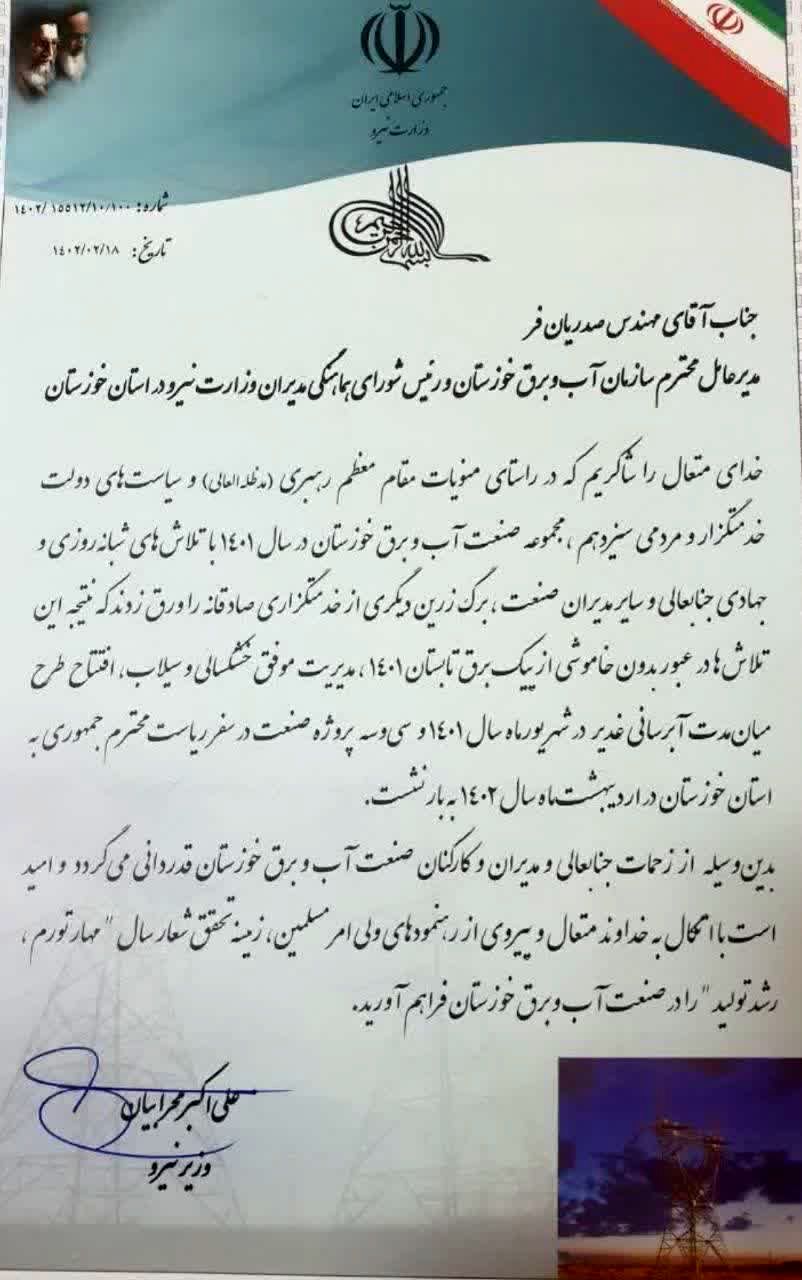 جمهوری اسلامی ایران
وزارت نیرو
بسم الله الرحمن الرحیم
شماره: ۱۴۰۲/۱۵۵۱۲/۱۰/۱۰۰
تاریخ: ۱۴۰۲/۰۲/۱۸
جناب آقای مهندس صدریان فر
مدیرعامل محترم سازمان آب و برق خوزستان و رئیس شورای هماهنگی مدیران وزارت نیرو در استان خوزستان
خدای متعال را شاکریم که در راستای منویات مقام معظم رهبری (مدظله العالی) و سیاست‌های دولت
خدمتگزار و مردمی سیزدهم ، مجموعه صنعت آب و برق خوزستان در سال ۱۴۰۱ با تلاش‌های شبانه روزی و
جهادی جنابعالی و سایر مدیران صنعت ، برگ زرین دیگری از خدمتگزاری صادقانه را ورق زدند که نتیجه این
تلاش ها در عبور بدون خاموشی از پیک برق تابستان ۱۴۰۱ ، مدیریت موفق خشکسالی و سیلاب، افتتاح طرح
میان‌مدت آبرسانی غدیر در شهریورماه سال ۱۴۰۱ و سی‌وسه پروژه صنعت در سفر ریاست محترم جمهوری به
استان خوزستان در اردیبهشت‌ماه سال ۱۴۰۲ به بار نشست.
بدین‌وسیله از زحمات جنابعالی و مدیران و کارکنان صنعت آب و برق خوزستان قدردانی می‌گردد و امید
است با اتکال به خداوند متعال و پیروی از رهنمودهای ولی امر مسلمین، زمینه تحقق شعار سال " مهار تورم ،
رشد تولید " را در صنعت آب و برق خوزستان فراهم آورید.
علی اکبر محرابیان
وزیر نیرو